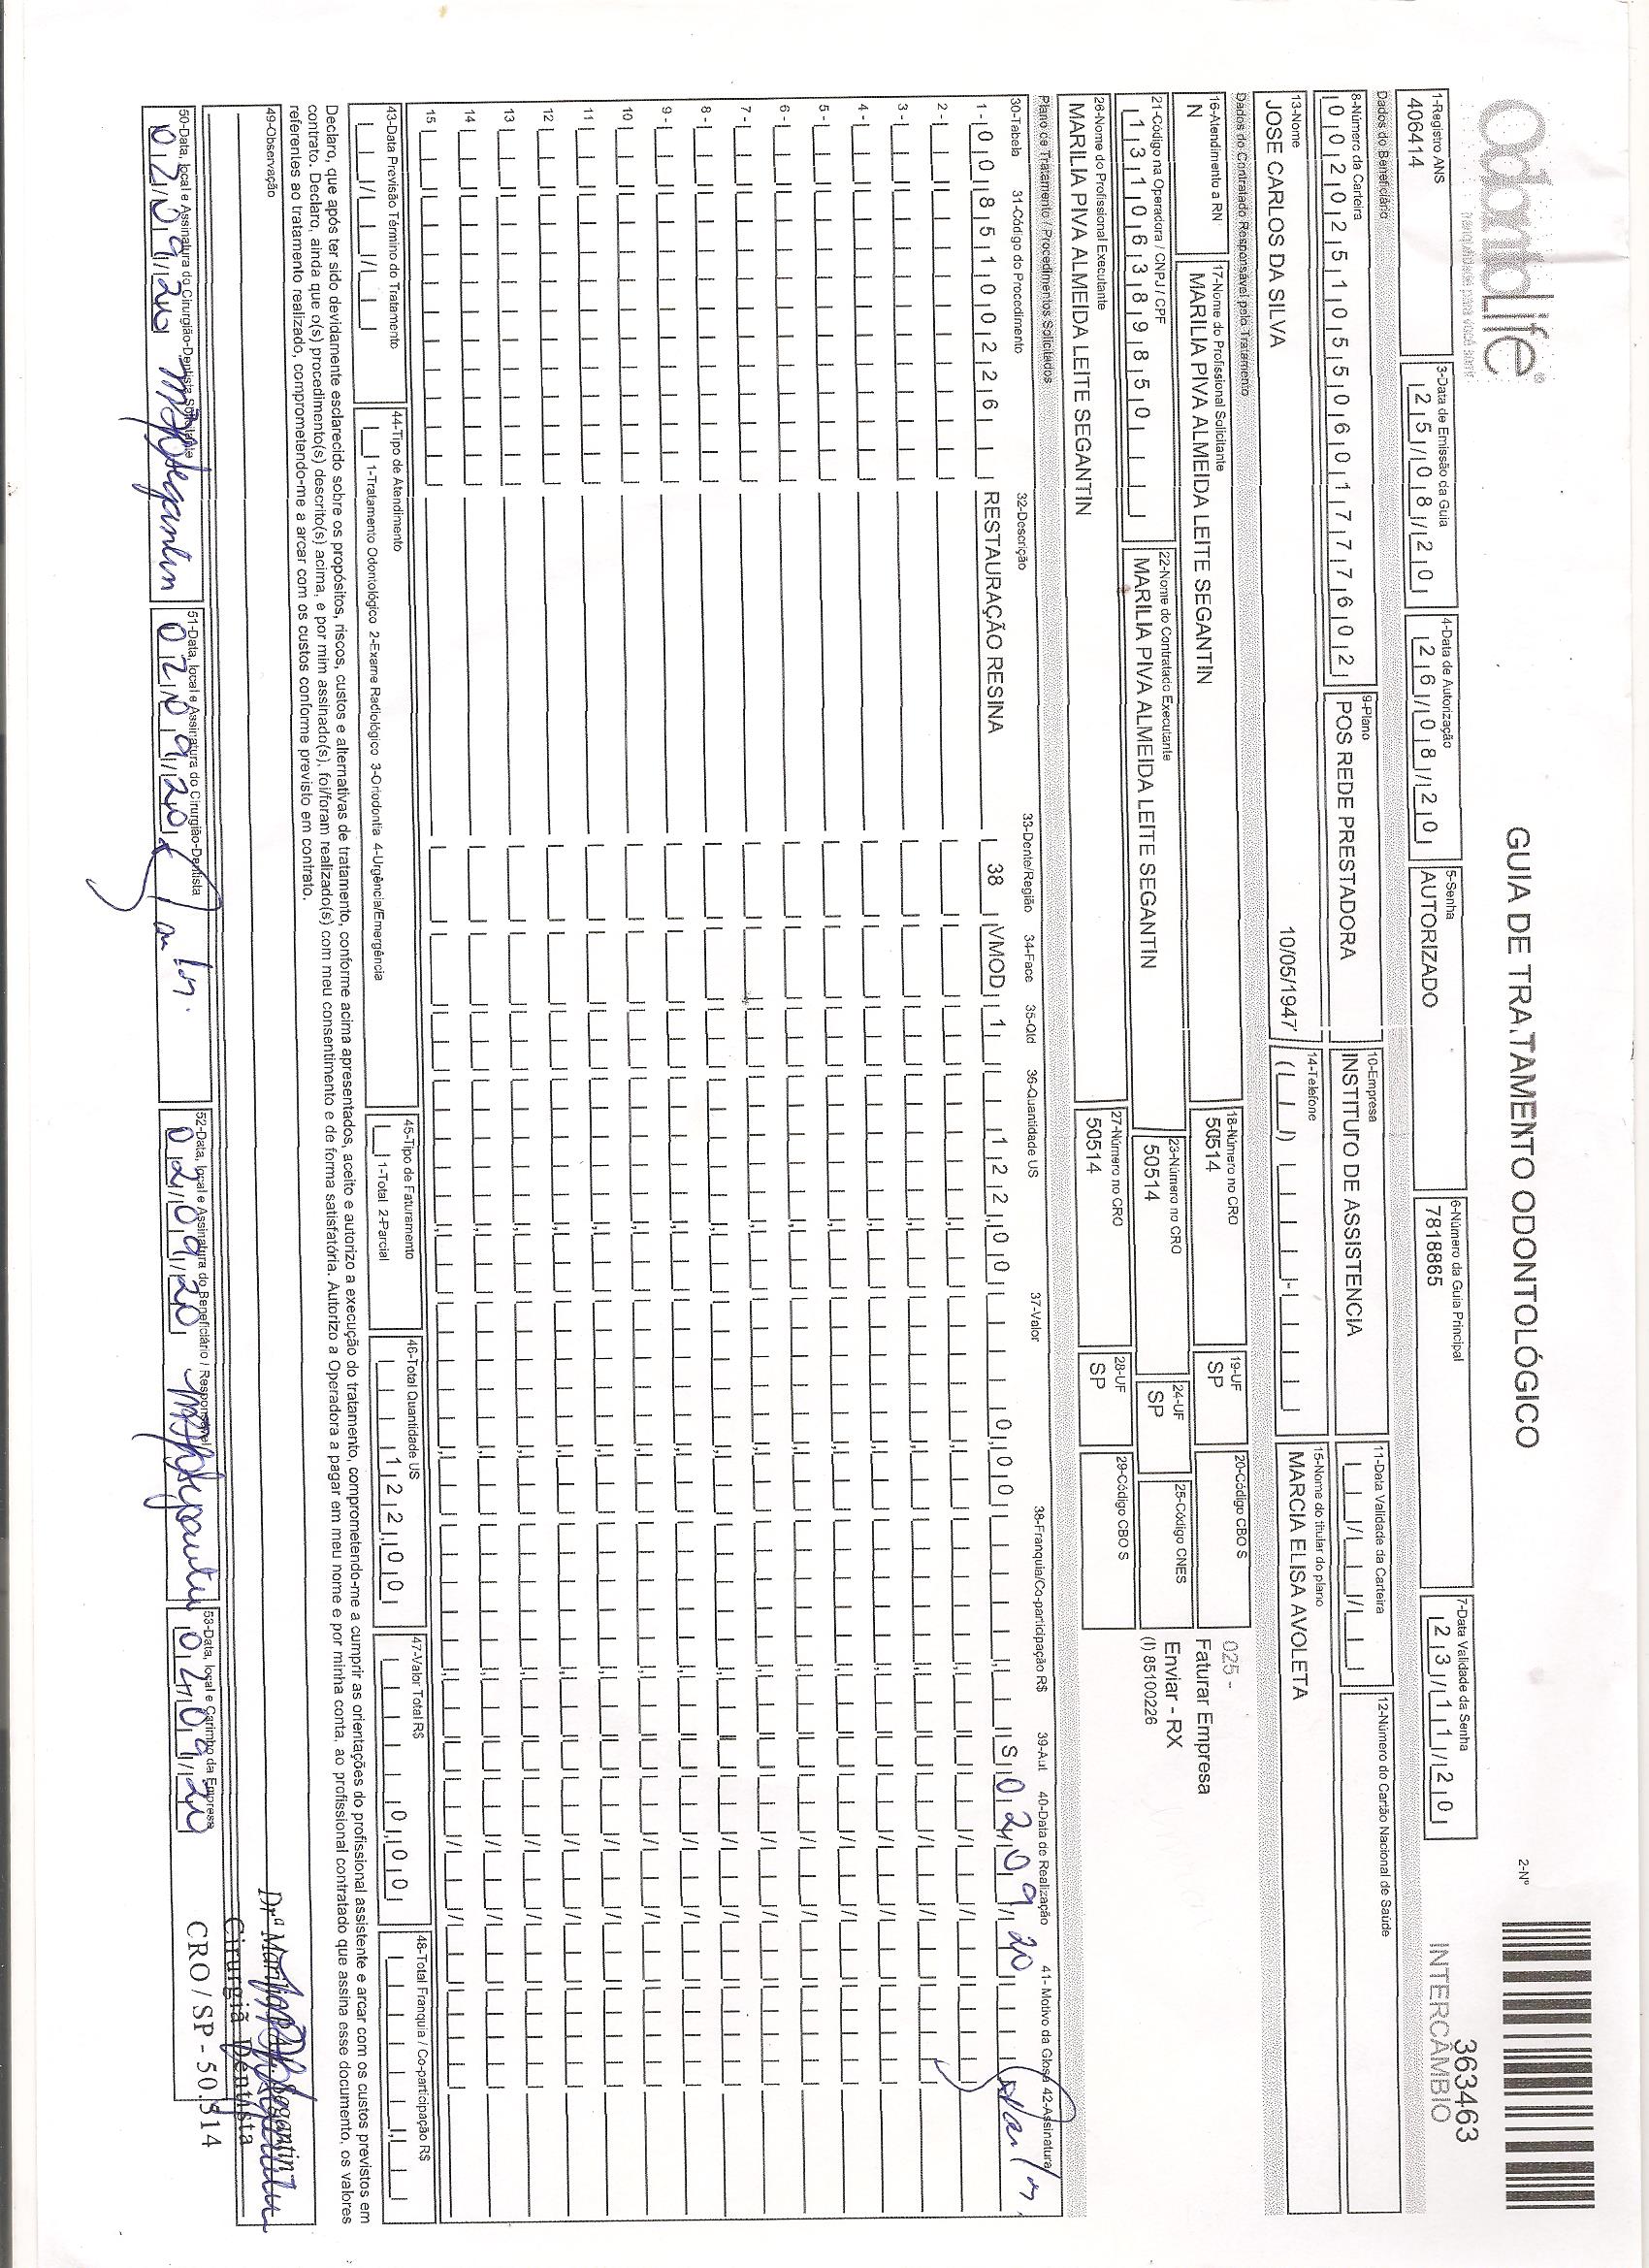 OdontoLife®
tranquilidade para você sorrir
GUIA DE TRATAMENTO ODONTOLÓGICO
2-Nº
363463
INTERCÂMBIO
1-Registro ANS
406414
3-Data de Emissão da Guia
25/08/20
4-Data de Autorização
26/08/20
5-Senha
AUTORIZADO
6-Número da Guia Principal
7818865
7-Data Validade da Senha
23/11/20
Dados do Beneficiário
8-Número da Carteira
00202510550601777602
9-Plano
POS REDE PRESTADORA
10-Empresa
INSTITUTO DE ASSISTENCIA
11-Data Validade da Carteira
12-Número do Cartão Nacional de Saúde
13-Nome
JOSE CARLOS DA SILVA
10/05/1947
14-Telefone
15-Nome do titular do plano
MARCIA ELISA AVOLETA
Dados do Contratado Responsável pelo Tratamento
16-Atendimento a RN
N
17-Nome do Profissional Solicitante
MARILIA PIVA ALMEIDA LEITE SEGANTIN
18-Número no CRO
50514
19-UF
SP
20-Código CBO S
025 -
Faturar Empresa
Enviar - RX
(I) 85100226
21-Código na Operadora / CNPJ / CPF
13106389850
22-Nome do Contratado Executante
MARILIA PIVA ALMEIDA LEITE SEGANTIN
23-Número no CRO
50514
24-UF
SP
25-Código CNES
26-Nome do Profissional Executante
MARILIA PIVA ALMEIDA LEITE SEGANTIN
27-Número no CRO
50514
28-UF
SP
29-Código CBO S
Plano de Tratamento / Procedimentos Solicitados
30-Tabela 31-Código do Procedimento 32-Descrição 33-Dente/Região 34-Face 35-Qtd 36-Quantidade US 37-Valor 38-Franquia/Co-participação R$ 39-Aut 40-Data de Realização 41- Motivo da Glosa 42-Assinatura
1- 00 85100226 RESTAURAÇÃO RESINA 38 VMOD 1 122,00 0,00 S 02/09/20
2-
3-
4-
5-
6-
7-
8-
9-
10
11
12
13
14
15
43-Data Previsão Término do Tratamento
44-Tipo de Atendimento
1-Tratamento Odontológico 2-Exame Radiológico 3-Ortodontia 4-Urgência/Emergência
45-Tipo de Faturamento
1-Total 2-Parcial
46-Total Quantidade US
122,00
47-Valor Total R$
0,00
48-Total Franquia / Co-participação R$
Declaro, que após ter sido devidamente esclarecido sobre os propósitos, riscos, custos e alternativas de tratamento, conforme acima apresentados, aceito e autorizo a execução do tratamento, comprometendo-me a cumprir as orientações do profissional assistente e arcar com os custos previstos em
contrato. Declaro, ainda que o(s) procedimento(s) descrito(s) acima, e por mim assinado(s), foi/foram realizado(s) com meu consentimento e de forma satisfatória. Autorizo a Operadora a pagar em meu nome e por minha conta, ao profissional contratado que assina esse documento, os valores
referentes ao tratamento realizado, comprometendo-me a arcar com os custos conforme previsto em contrato.
49-Observação
50-Data, local e Assinatura do Cirurgião-Dentista Solicitante
02/09/20
51-Data, local e Assinatura do Cirurgião-Dentista
02/09/20
52-Data, local e Assinatura do Beneficiário / Responsável
02/09/20
53-Data, local e Carimbo da Empresa
02/09/20
Drª Marilia P. A. L. Segantin
Cirurgiã Dentista
CRO / SP - 50.514